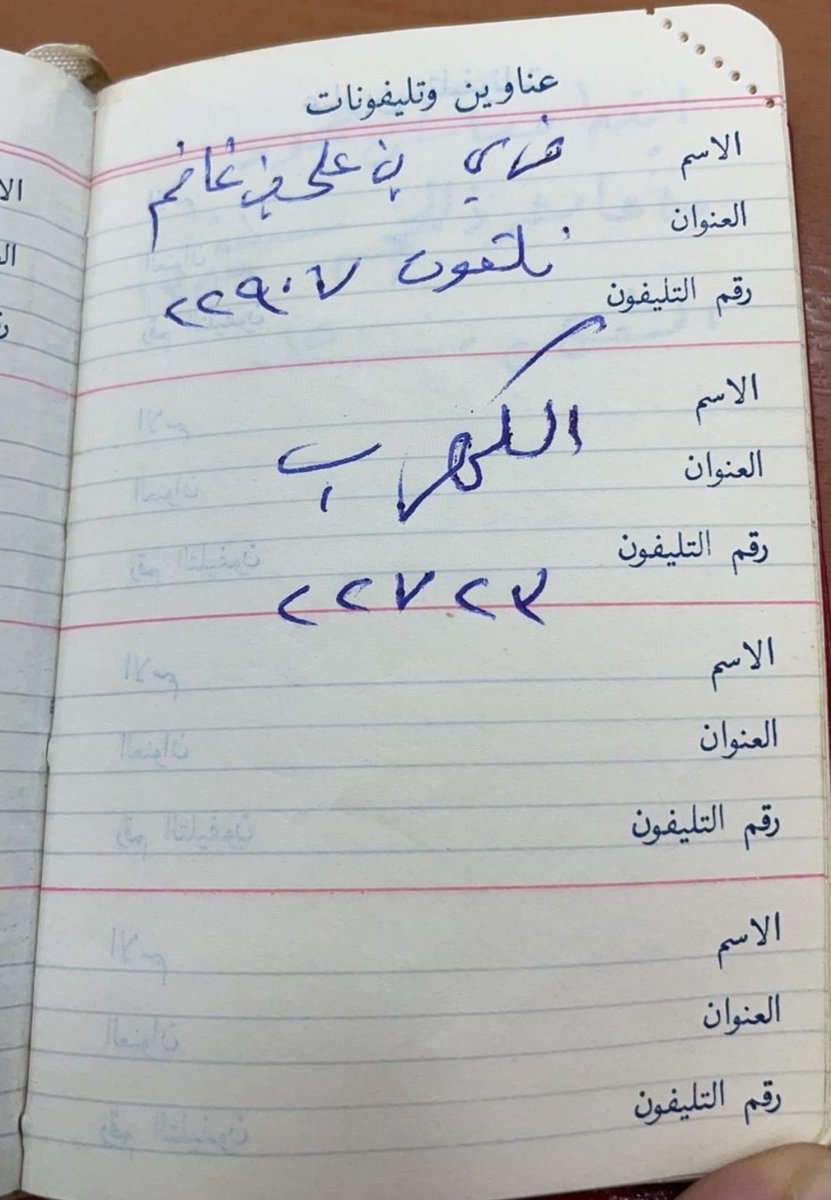 عناوين وتليفونات
الاسم بن علي بن غانم
العنوان
تلفون ٢٢٩٠٧
رقم التليفون
الاسم
الكهرب
العنوان
رقم التليفون
٢٢٧٢٣
الاسم
العنوان
رقم التليفون
الاسم
العنوان
رقم التليفون